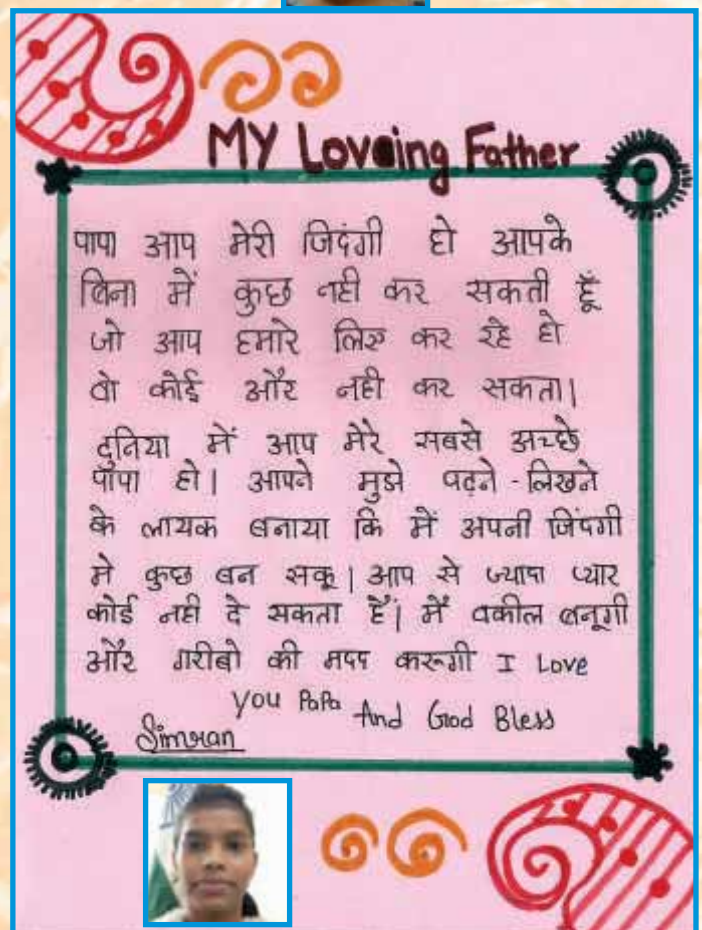 MY Loveing Father
पापा आप मेरी जिदंगी हो आपके
बिना में कुछ नही कर सकती हूँ
जो आप हमारे लिए कर रहे हो
वो कोई और नही कर सकता।
दुनिया में आप मेरे सबसे अच्छे
पापा हो। आपने मुझे पढ़ने-लिखने
के लायक बनाया कि में अपनी जिंदगी
मे कुछ बन सकू। आप से ज्यादा प्यार
कोई नही दे सकता हैं। में वकील बनूगी
और गरीबो की मदद करूगी I Love
You PaPa And God Bless
Simran